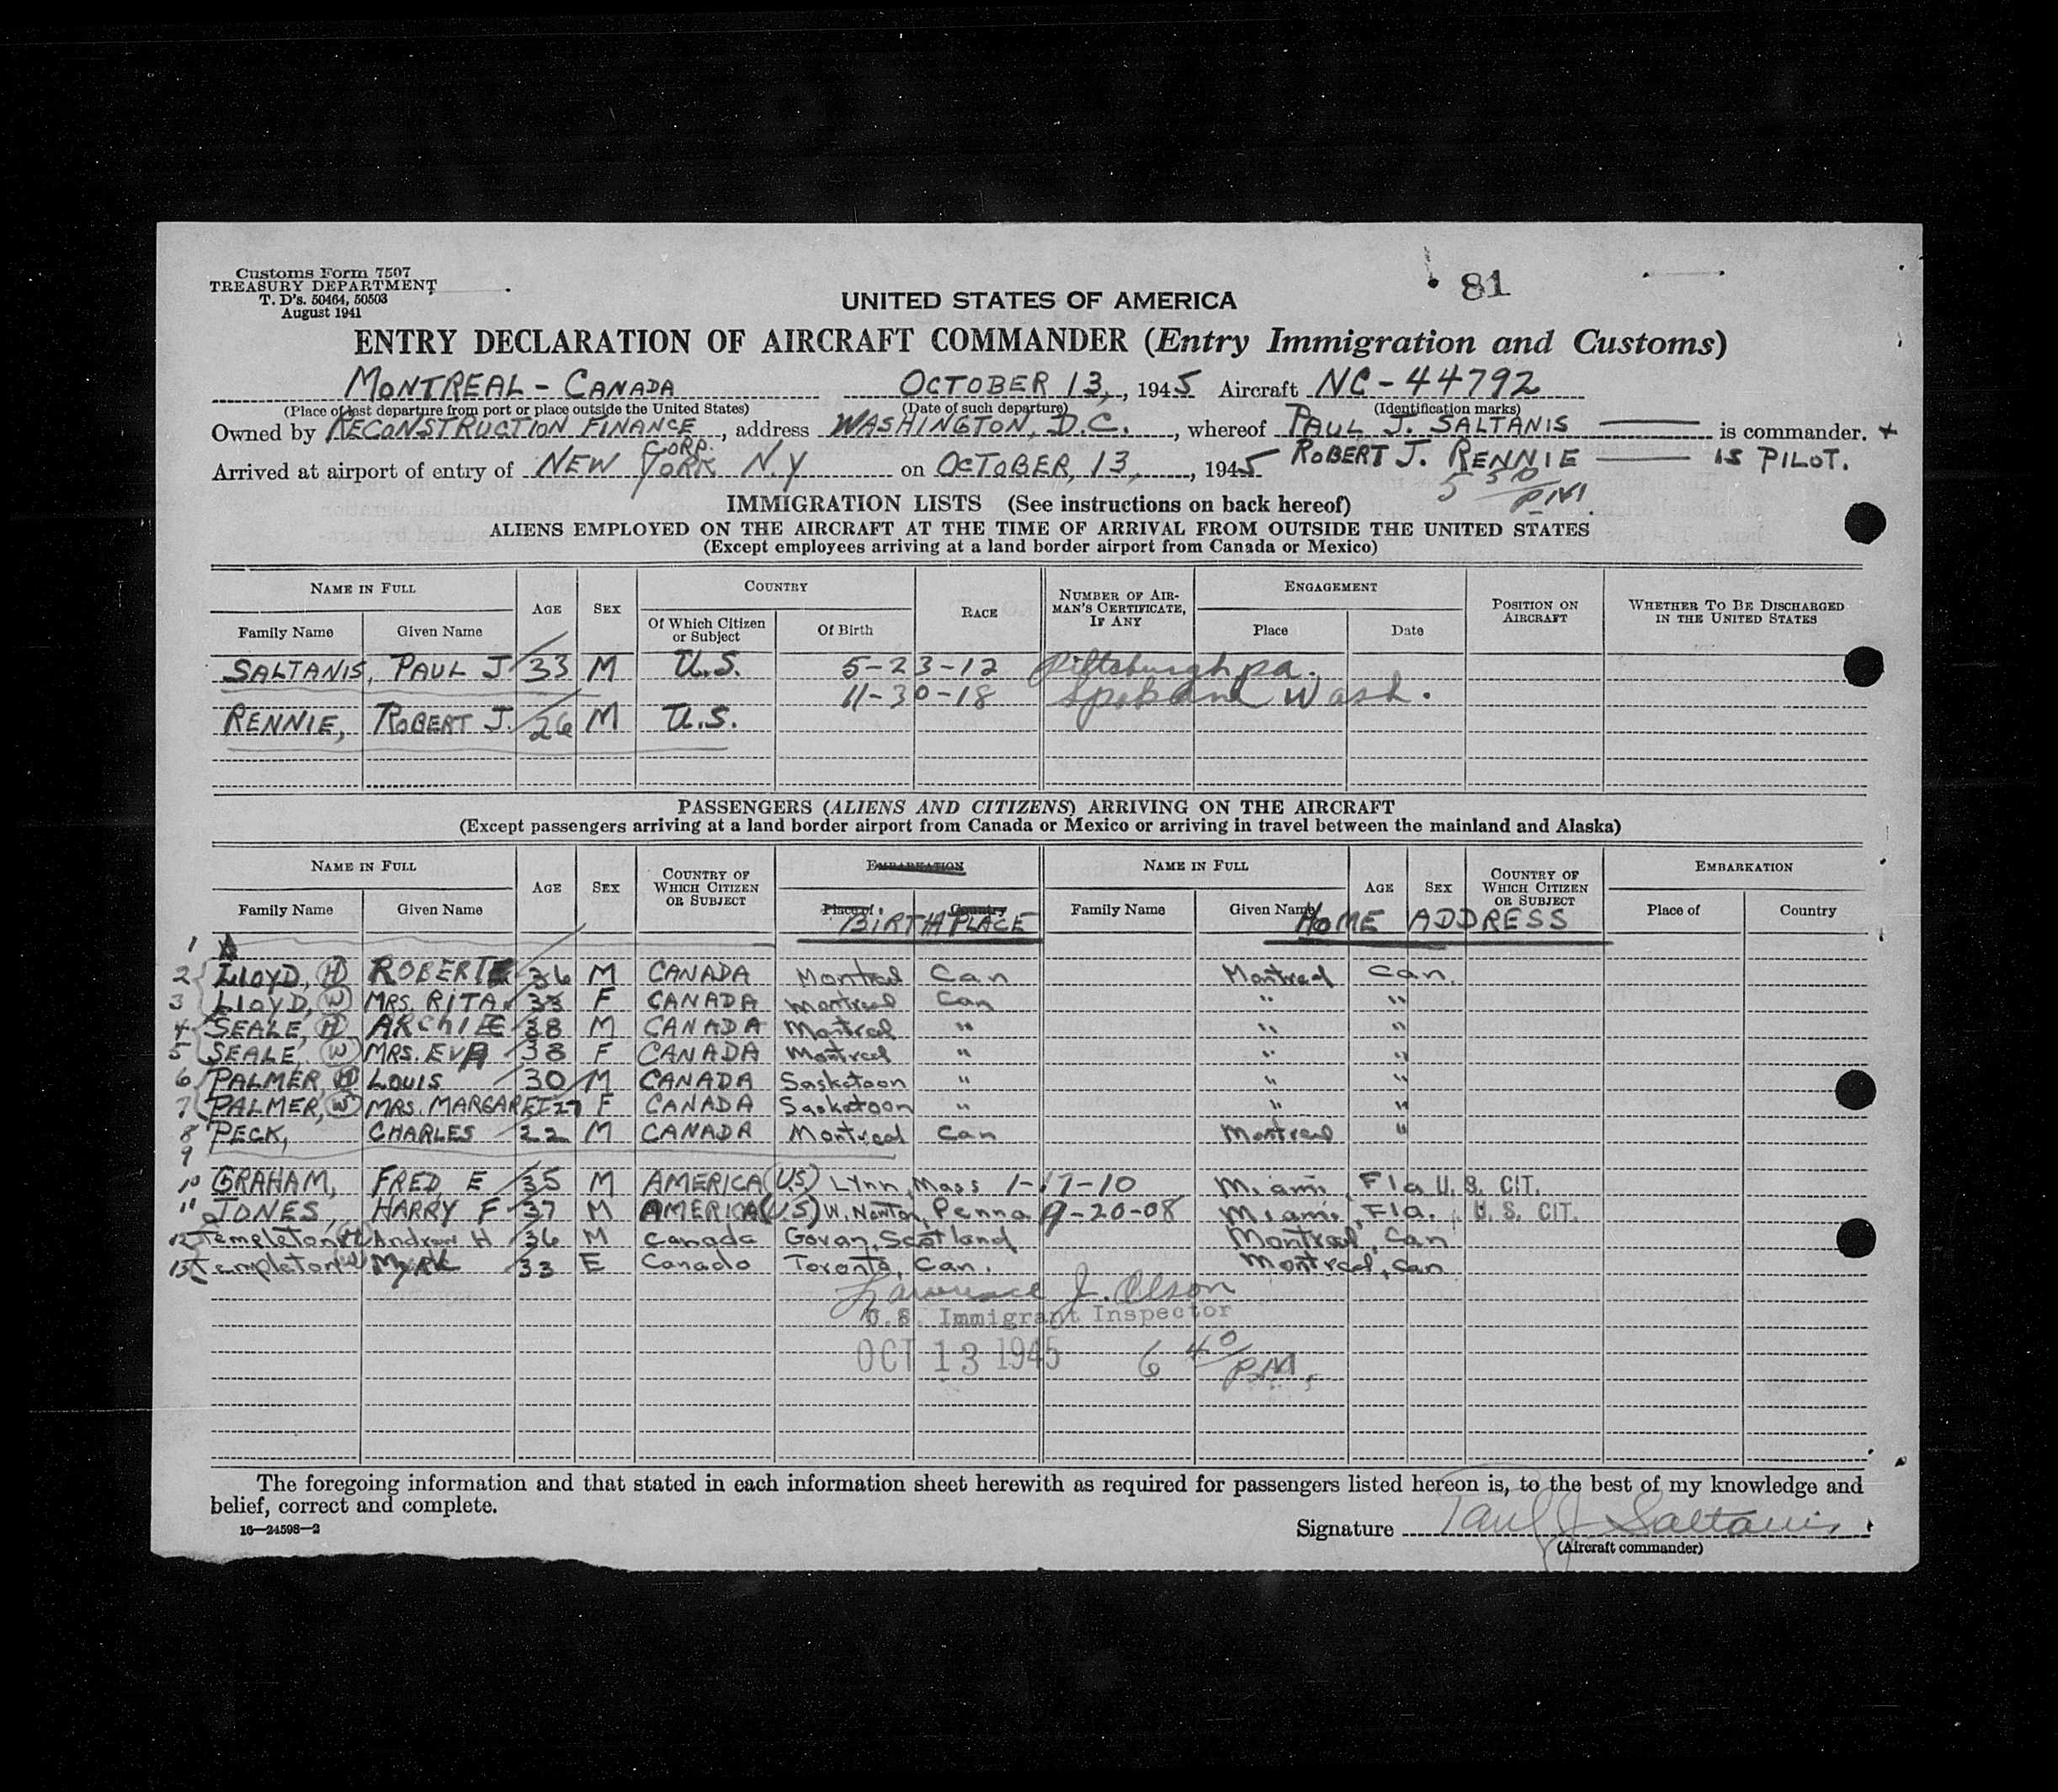 Customs Form 7507
TREASURY DEPARTMENT
T. D's. 50464, 50503
August 1941
81
UNITED STATES OF AMERICA
ENTRY DECLARATION OF AIRCRAFT COMMANDER (Entry Immigration and Customs)
MONTREAL - CANADA OCTOBER 13, , 1945 Aircraft NC-44792
(Place of last departure from port or place outside the United States) (Date of such departure) (Identification marks)
Owned by RECONSTRUCTION FINANCE CORP. , address WASHINGTON, D.C. , whereof PAUL J. SALTANIS is commander. +
Arrived at airport of entry of NEW YORK N.Y on OCTOBER, 13, , 1945 ROBERT J. RENNIE IS PILOT.
5 50 PM.
IMMIGRATION LISTS (See instructions on back hereof)
ALIENS EMPLOYED ON THE AIRCRAFT AT THE TIME OF ARRIVAL FROM OUTSIDE THE UNITED STATES
(Except employees arriving at a land border airport from Canada or Mexico)
NAME IN FULL AGE SEX COUNTRY RACE NUMBER OF AIRMAN'S CERTIFICATE, IF ANY ENGAGEMENT POSITION ON AIRCRAFT WHETHER TO BE DISCHARGED IN THE UNITED STATES
Family Name Given Name Of Which Citizen or Subject Of Birth Place Date
SALTANIS, PAUL J 33 M U.S. 5-23-12 Pittsburgh pa.
11-30-18 Spokane Wash.
RENNIE, ROBERT J. 26 M U.S.
PASSENGERS (ALIENS AND CITIZENS) ARRIVING ON THE AIRCRAFT
(Except passengers arriving at a land border airport from Canada or Mexico or arriving in travel between the mainland and Alaska)
NAME IN FULL AGE SEX COUNTRY OF WHICH CITIZEN OR SUBJECT EMBARKATION NAME IN FULL AGE SEX COUNTRY OF WHICH CITIZEN OR SUBJECT EMBARKATION
Family Name Given Name Place of Country Family Name Given Name Place of Country
BIRTH PLACE HOME ADDRESS
1
2 LLOYD, (H) ROBERT 36 M CANADA Montreal Can Montreal Can.
3 LLOYD, (W) MRS. RITA 33 F CANADA Montreal Can " "
4 SEALE, (H) ARCHIE 38 M CANADA Montreal " " "
5 SEALE, (W) MRS. EVA 38 F CANADA Montreal " " "
6 PALMER (H) LOUIS 30 M CANADA Saskatoon " " "
7 PALMER, (W) MRS. MARGARET 27 F CANADA Saskatoon " " "
8 PECK, CHARLES 22 M CANADA Montreal Can Montreal "
9
10 GRAHAM, FRED E 35 M AMERICA (U.S) Lynn, Mass 1-17-10 Miami, Fla U. S. CIT.
11 JONES, HARRY F 37 M AMERICA (U.S) W. Newton, Penna 9-20-08 Miami, Fla. U. S. CIT.
12 Templeton (H) Andrew H 36 M Canada Govan, Scotland Montreal, Can
13 Templeton (W) 33 F Canada Toronto, Can. Montreal, Can
Lawrence J. Olson
U.S. Immigrant Inspector
OCT 13 1945 6 40 PM.
The foregoing information and that stated in each information sheet herewith as required for passengers listed hereon is, to the best of my knowledge and
belief, correct and complete.
16—24598—2
Signature Paul J Saltanis
(Aircraft commander)